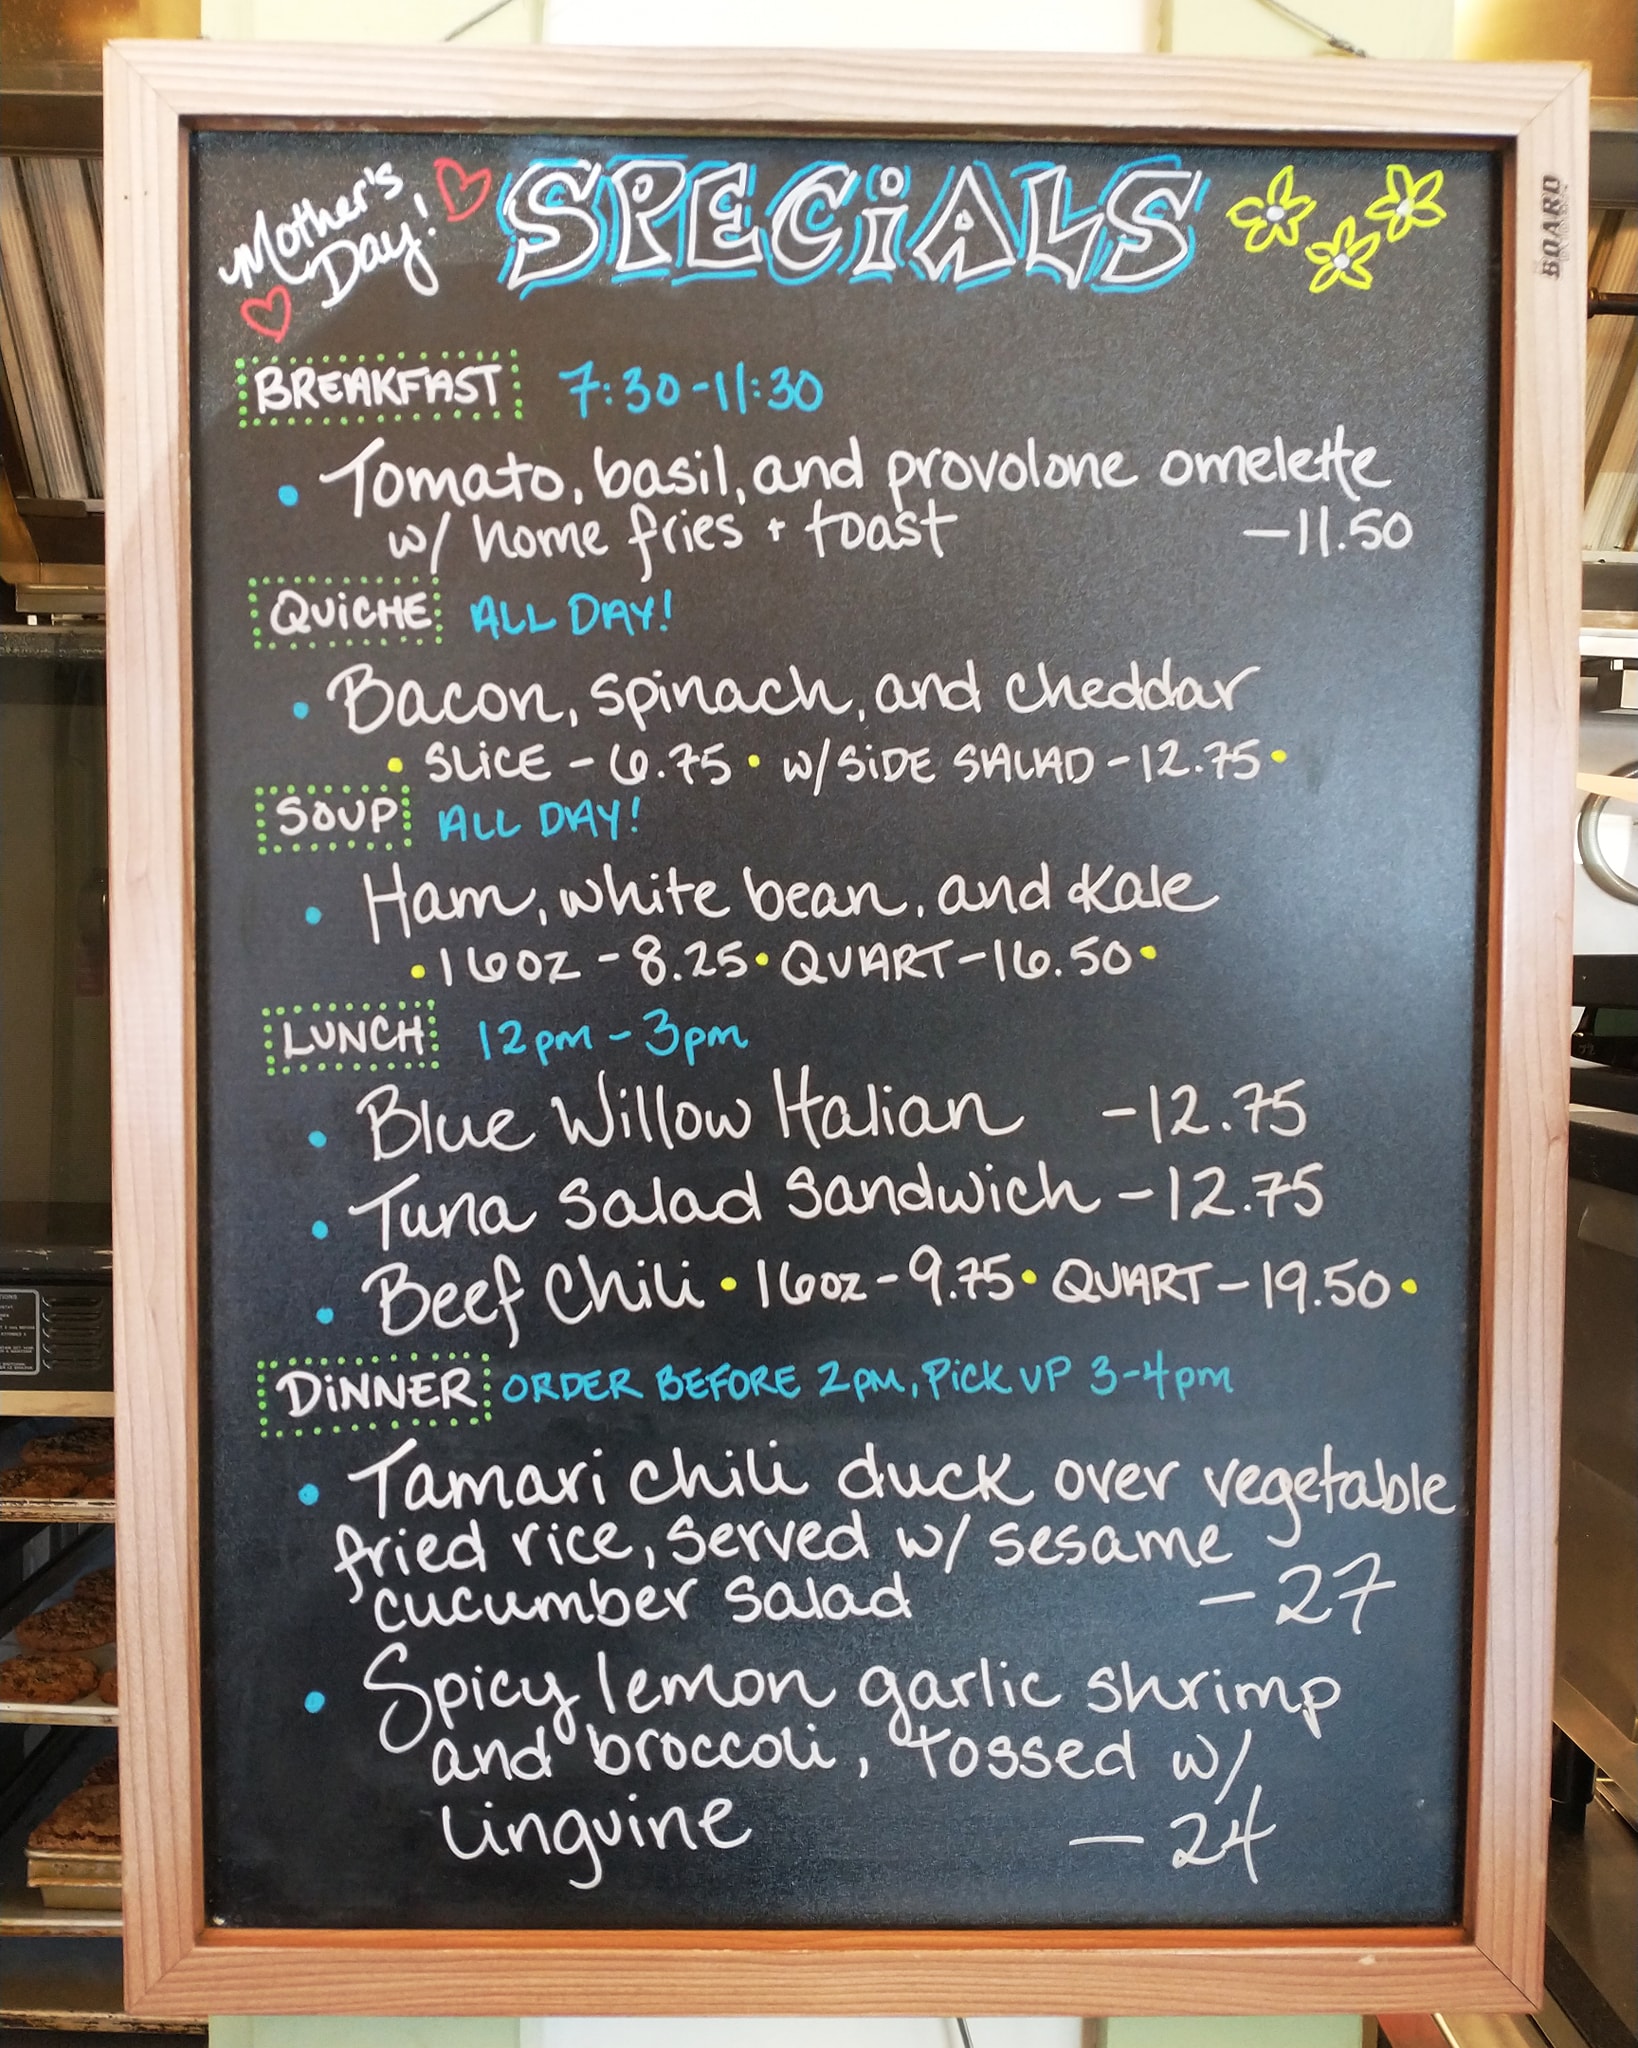 Mother's Day! SPECiALS
BREAKFAST 7:30-11:30
• Tomato, basil, and provolone omelette
w/ home fries + toast -11.50
QUiCHE ALL DAY!
• Bacon, spinach, and cheddar
• SLiCE - 6.75 • w/ SiDE SALAD - 12.75 •
SOUP ALL DAY!
• Ham, white bean, and kale
• 16oz - 8.25 • QUART - 16.50 •
LUNCH 12pm - 3pm
• Blue Willow Italian - 12.75
• Tuna Salad Sandwich - 12.75
• Beef Chili • 16oz - 9.75 • QUART - 19.50 •
DiNNER ORDER BEFORE 2PM, PiCK UP 3-4pm
• Tamari chili duck over vegetable
fried rice, served w/ sesame
cucumber salad - 27
• Spicy lemon garlic shrimp
and broccoli, tossed w/
linguine - 24
BOARD